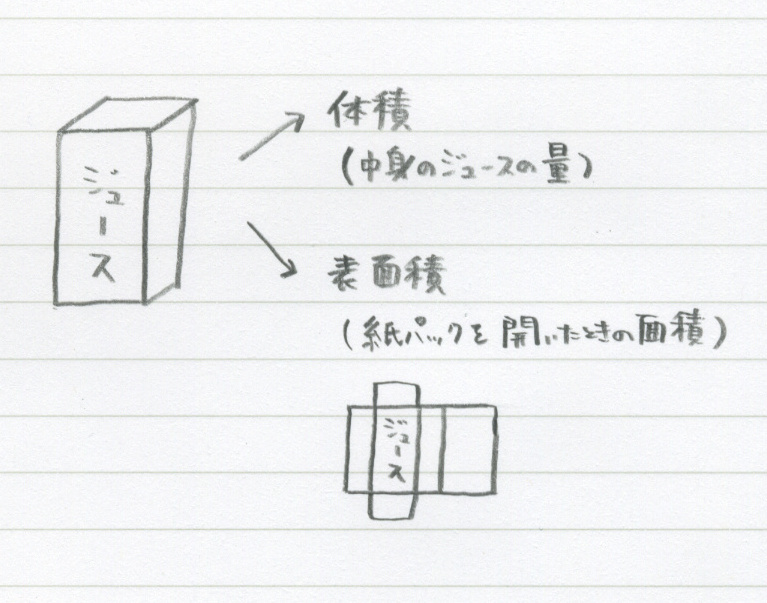 ジュース
体積
(中身のジュースの量)
表面積
(紙パックを開いたときの面積)
ジュース